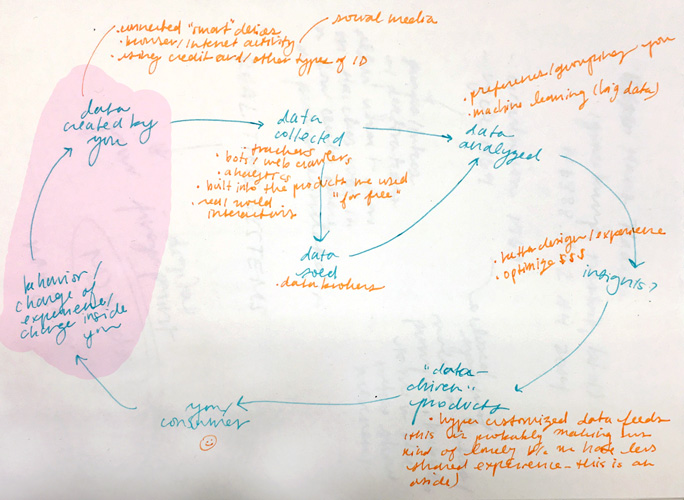 • connected "smart" devices
• browser/internet activity
• using credit card/other types of ID
social media
data
created by
you
data
collected
• trackers
• bots/web crawlers
• analytics
• built into the products we used
"for free"
• real world
interactions
• preference/grouping you
• machine learning (big data)
data
analyzed
data
sold
• data brokers
• better design/experience
• optimize $$$
insights?
"data-
driven"
products
• hyper customized data feeds
(this is probably making us
kind of lonely b/c we have less
shared experience - this is an
aside)
you/
consumer
behavior/
change of
experience/
change inside
you